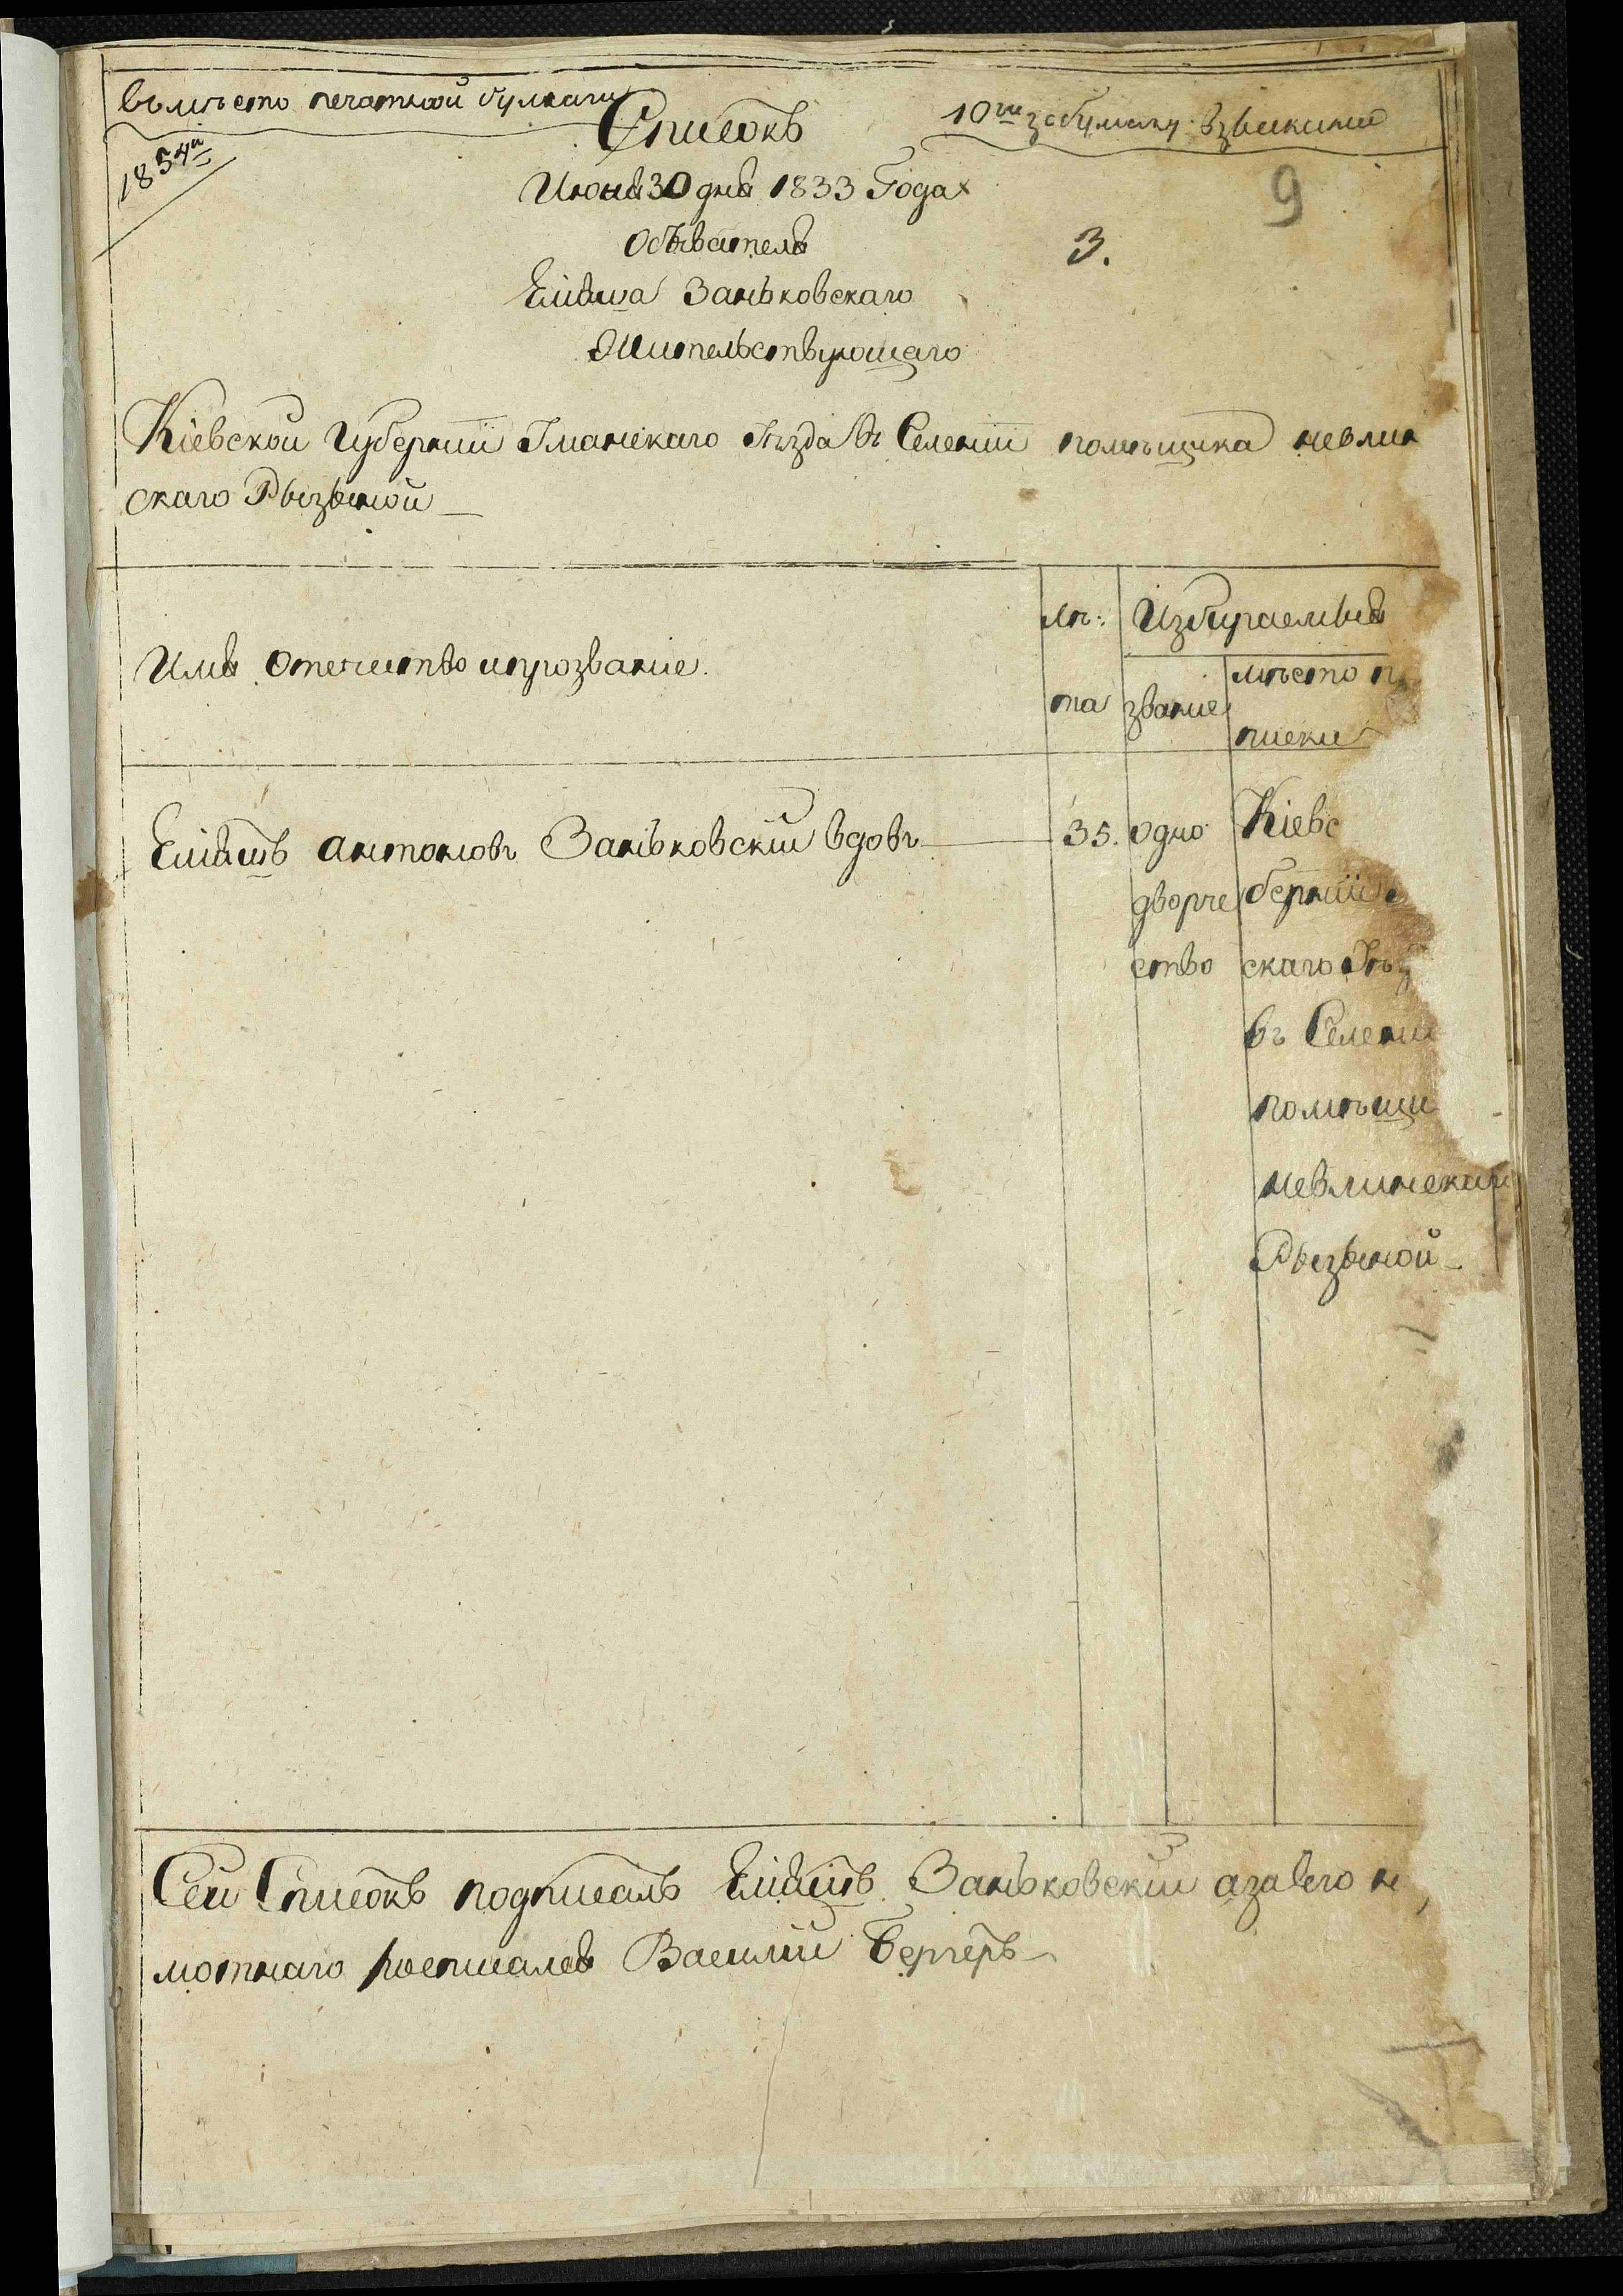 вьмѣсто печатной бумаги
Списокъ
10ти за бумагу взыскании
1854й
9
Июня 30 дня 1833 Года
3.
Обывателя
Еліяша Заньковскаго
Жительствующаго
Кіевской Губерніи Уманскаго Уѣзда въ Селеніи помѣщика невлин
скаго Рызыной
Имя Отечество и прозваніе.
лѣ:
та
Избираемыя
звание
мѣсто п
писки
Еліяшъ антоновъ Заньковскій вдовъ
35.
одно
дворче
ство
Кіевс
берніи
скаго Уѣз
въ Селени
помѣщи
невлинскаг
Рызыной
Сей Списокъ подписалъ Еліяшъ Заньковскій а за его н
мотнаго росписался Василій Бергеръ